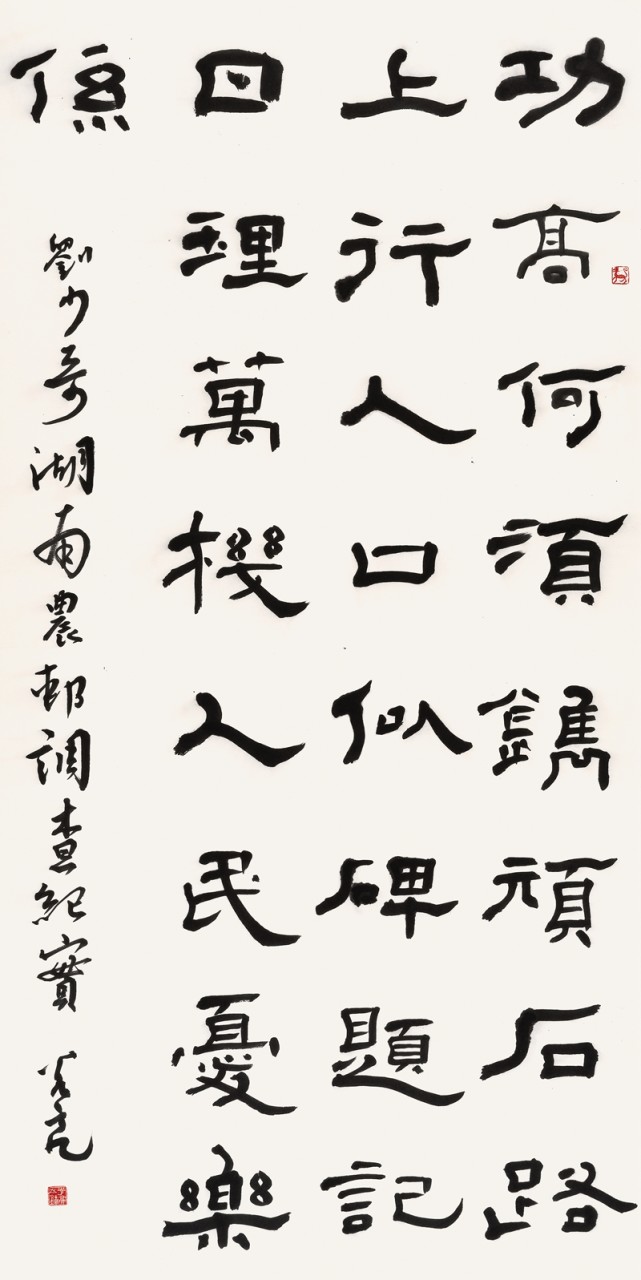 功高何須鐫頑石路
上行人口似碑題記
日理萬機人民憂樂
係
劉少奇湖南農邨調查紀實